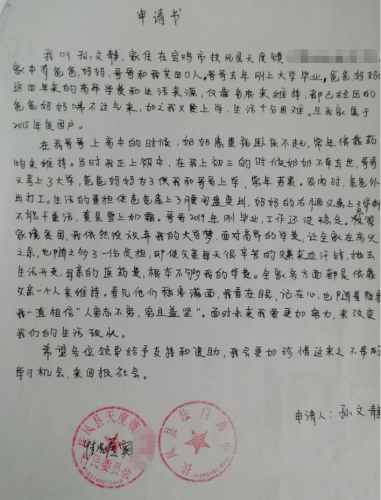 申请书
我叫孙文静，家住在宝鸡市扶风县天度镇
家中有爸爸，妈妈，哥哥和我共四口人。哥哥去年刚上大学毕业，爸爸妈妈
这四年来的高昂学费和生活来源，仅靠务农来维持，都已经压的
爸爸妈妈喘不过气来，加之我又要上学，生活十分困难。且我家属于
2015年贫困户。
在我哥哥上高中的时候，奶奶病重瘫卧床不起，常年依靠药
物来维持。当时我正上初中，在我上初三的时候奶奶不幸去世，哥哥
又考上了大学，爸爸妈妈为了供我和哥哥上学，常年劳累。农闲时，爸爸外
出打工。生活的重担使爸爸患上了腰间盘突出，妈妈的右腿又患上了
不能干重活，真是雪上加霜。哥哥2019年刚毕业，工作还没稳定。
家境贫困，我依然没放弃我的大学梦，面对高昂的学费，让全家在高兴
之余，也随之多了一份负担，即使父亲每天很辛苦的赚来血汗钱，抛去
生活开支，母亲的医药费，根本不够我的学费。全家各方面都是依靠
父亲一个人来维持。看见他们愁容满面，我看在眼，记在心，也
我一直相信“人穷志不穷，穷且益坚”。面对未来我要更加努力，来改变
我们的生活现状。
希望各位领导给予支持和资助，我会更加珍惜这来之不易的
学习机会，来回报社会。
申请人：孙文静
扶风县天度镇
村民委员会
扶风县法门高中